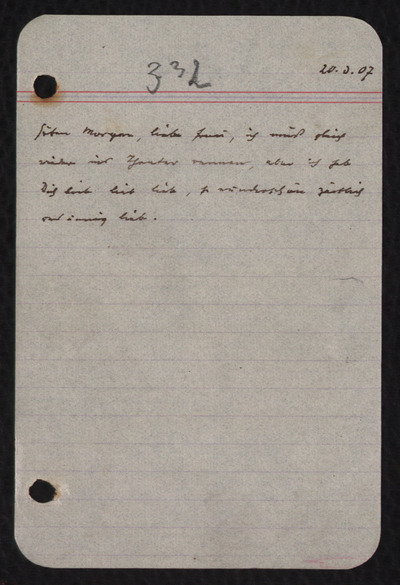 332
20.3.07
Guten Morgen, liebe Frau, ich muß gleich
wieder ins Theater rennen, aber ich hab
Dich lieb lieb lieb, so wunderschön zärtlich
und innig lieb.